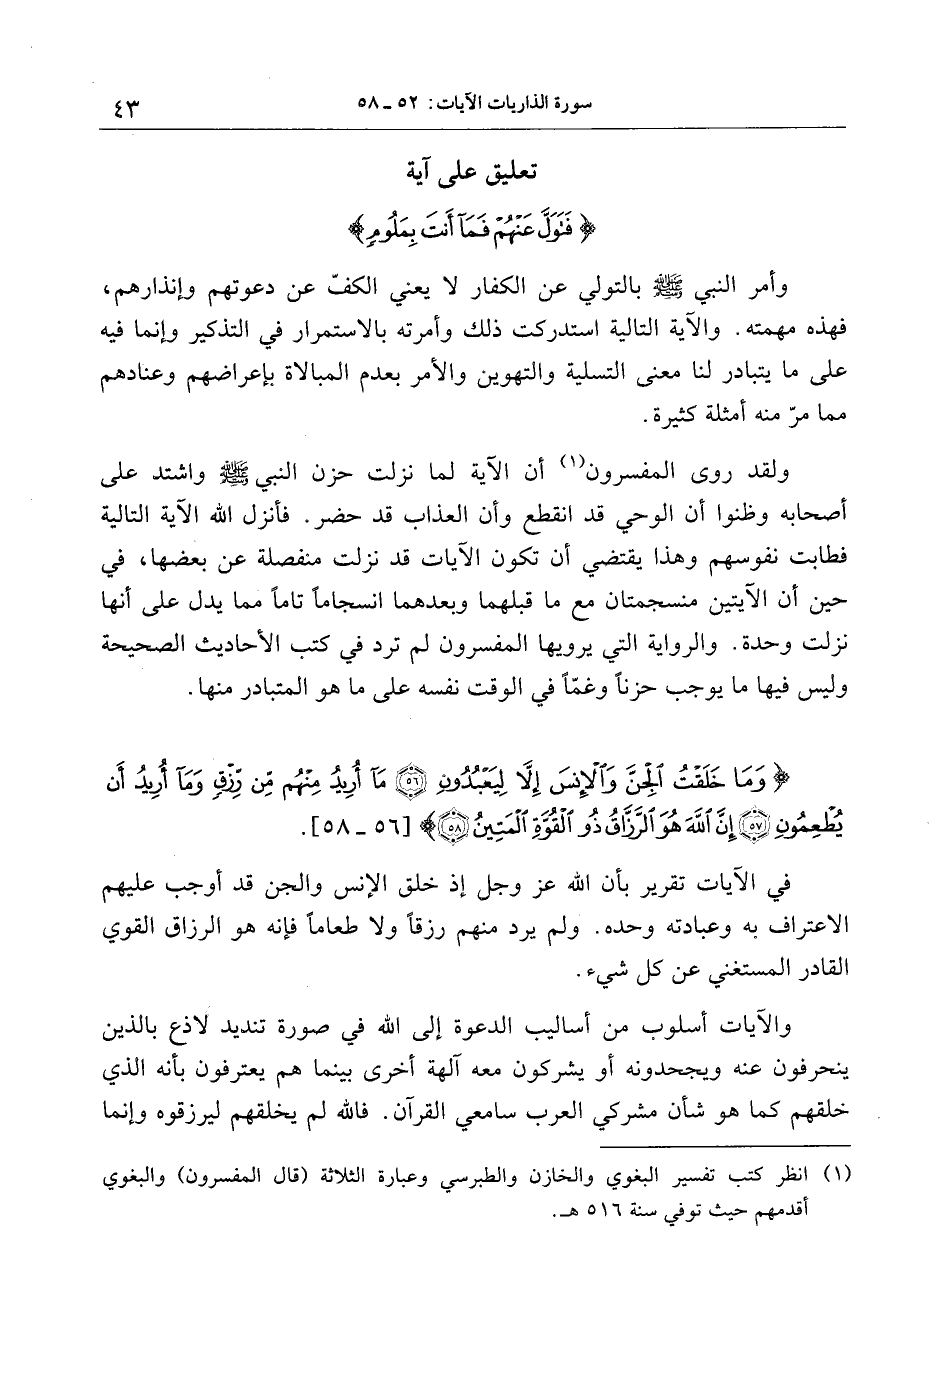 سورة الذاريات الآيات: ٥٢ ـ ٥٨
٤٣
تعليق على آية
﴿ فَتَوَلَّ عَنْهُمْ فَمَآ أَنتَ بِمَلُومٍ﴾
وأمر النبي ﷺ بالتولي عن الكفار لا يعني الكفّ عن دعوتهم وإنذارهم،
فهذه مهمته. والآية التالية استدركت ذلك وأمرته بالاستمرار في التذكير وإنما فيه
على ما يتبادر لنا معنى التسلية والتهوين والأمر بعدم المبالاة بإعراضهم وعنادهم
مما مرّ منه أمثلة كثيرة.
ولقد روى المفسرون(١) أن الآية لما نزلت حزن النبي ﷺ واشتد على
أصحابه وظنوا أن الوحي قد انقطع وأن العذاب قد حضر. فأنزل الله الآية التالية
فطابت نفوسهم وهذا يقتضي أن تكون الآيات قد نزلت منفصلة عن بعضها، في
حين أن الآيتين منسجمتان مع ما قبلهما وبعدهما انسجاماً تاماً مما يدل على أنها
نزلت وحدة. والرواية التي يرويها المفسرون لم ترد في كتب الأحاديث الصحيحة
وليس فيها ما يوجب حزناً وغمّاً في الوقت نفسه على ما هو المتبادر منها.
﴿ وَمَا خَلَقْتُ ٱلْجِنَّ وَٱلْإِنسَ إِلَّا لِيَعْبُدُونِ ٥٦ مَآ أُرِيدُ مِنْهُم مِّن رِّزْقٍ وَمَآ أُرِيدُ أَن
يُطْعِمُونِ ٥٧ إِنَّ ٱللَّهَ هُوَ ٱلرَّزَّاقُ ذُو ٱلْقُوَّةِ ٱلْمَتِينُ ٥٨﴾ [٥٦ ـ ٥٨].
في الآيات تقرير بأن الله عز وجل إذ خلق الإنس والجن قد أوجب عليهم
الاعتراف به وعبادته وحده. ولم يرد منهم رزقاً ولا طعاماً فإنه هو الرزاق القوي
القادر المستغني عن كل شيء.
والآيات أسلوب من أساليب الدعوة إلى الله في صورة تنديد لاذع بالذين
ينحرفون عنه ويجحدونه أو يشركون معه آلهة أخرى بينما هم يعترفون بأنه الذي
خلقهم كما هو شأن مشركي العرب سامعي القرآن. فالله لم يخلقهم ليرزقوه وإنما
(١) انظر كتب تفسير البغوي والخازن والطبرسي وعبارة الثلاثة (قال المفسرون) والبغوي
أقدمهم حيث توفي سنة ٥١٦ هـ.